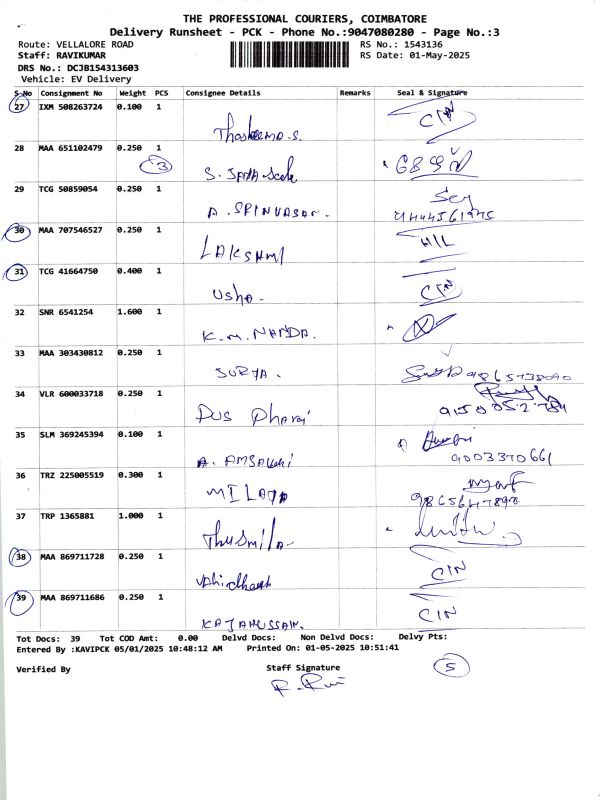 THE PROFESSIONAL COURIERS, COIMBATORE
Delivery Runsheet - PCK - Phone No.:9047080280 - Page No.:3
Route: VELLALORE ROAD RS No.: 1543136
Staff: RAVIKUMAR RS Date: 01-May-2025
DRS No.: DCJB154313603
Vehicle: EV Delivery
S.No Consignment No Weight PCS Consignee Details Remarks Seal & Signature
27 IXM 508263724 0.100 1 CIN
28 MAA 651102479 0.250 1
3
29 TCG 50859054 0.250 1
A. SRINVASAN.
30 MAA 707546527 0.250 1 H/L
LAKSHMI
31 TCG 41664750 0.400 1 CIN
Usha.
32 SNR 6541254 1.600 1
K.M. NANDA.
33 MAA 303430812 0.250 1
SURYA.
34 VLR 600033718 0.250 1
35 SLM 369245394 0.100 1
9003370661
36 TRZ 225005519 0.300 1
37 TRP 1365881 1.000 1
38 MAA 869711728 0.250 1 CIN
39 MAA 869711686 0.250 1 CIN
KAJAHUSSAIN.
Tot Docs: 39 Tot COD Amt: 0.00 Delvd Docs: Non Delvd Docs: Delvy Pts:
Entered By :KAVIPCK 05/01/2025 10:48:12 AM Printed On: 01-05-2025 10:51:41
5
Verified By Staff Signature